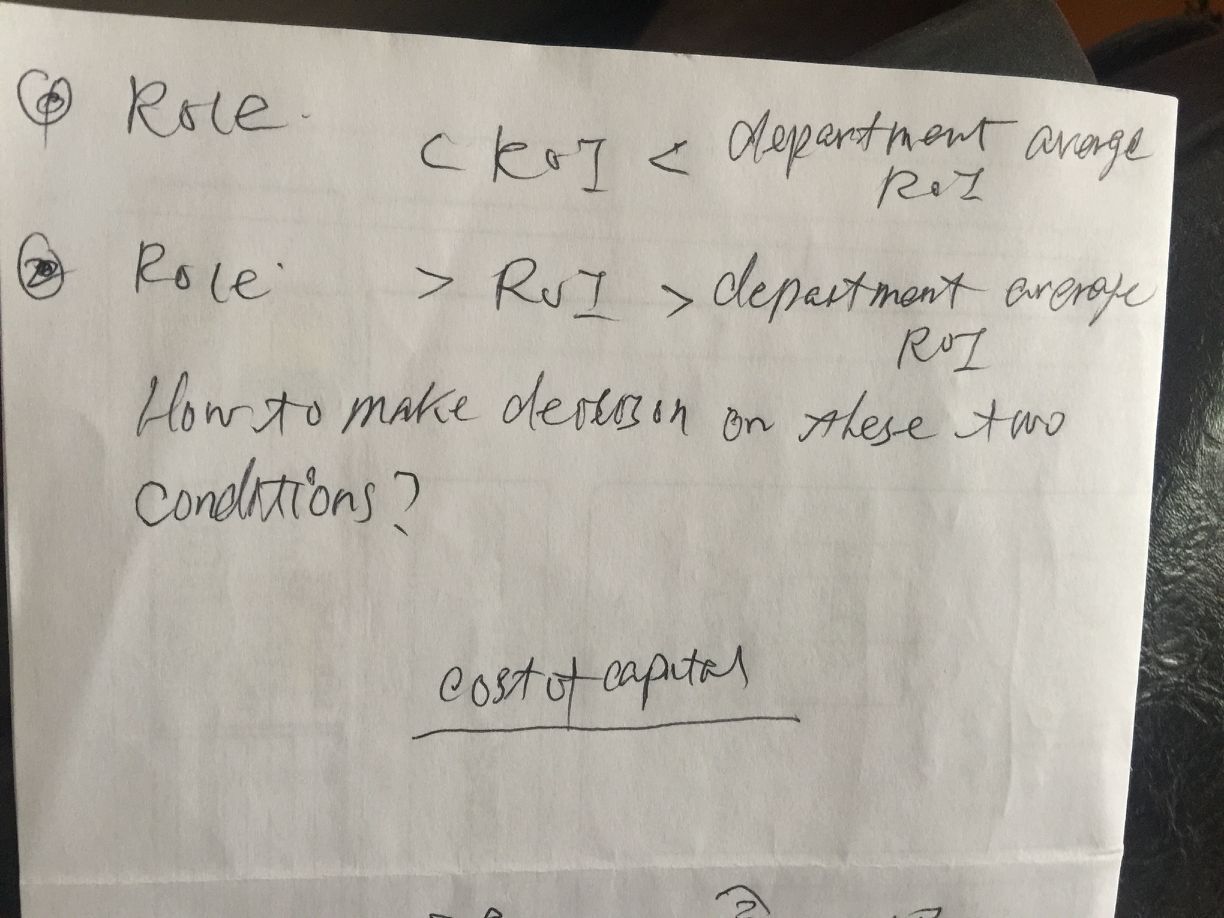 ① Role. < RoI < department average
RoI
② Role > RoI > department average
RoI
How to make decision on these two
conditions?
cost of capital